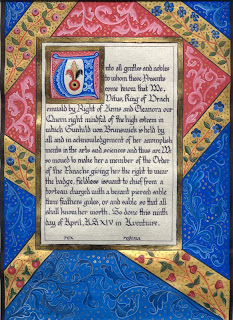 Unto all gentles and nobles
to whom these Presents
come know that We,
Vitus, King of Drach
enwald by Right of Arms and Eleanora our
Queen right mindful of the high esteem in
which Gunhild von Brunswick is held by
all and in acknowledgement of her accomplish
ments in the arts and sciences and thus are We
so moved to make her a member of the Order
of the Panache giving her the right to wear
the badge, fieldless issuant to chief from a
torteau charged with a bezant pierced sable
three feathers gules, or and sable so that all
shall know her worth. So done this ninth
day of April, A.S. XLV in Aventure.
rex regina